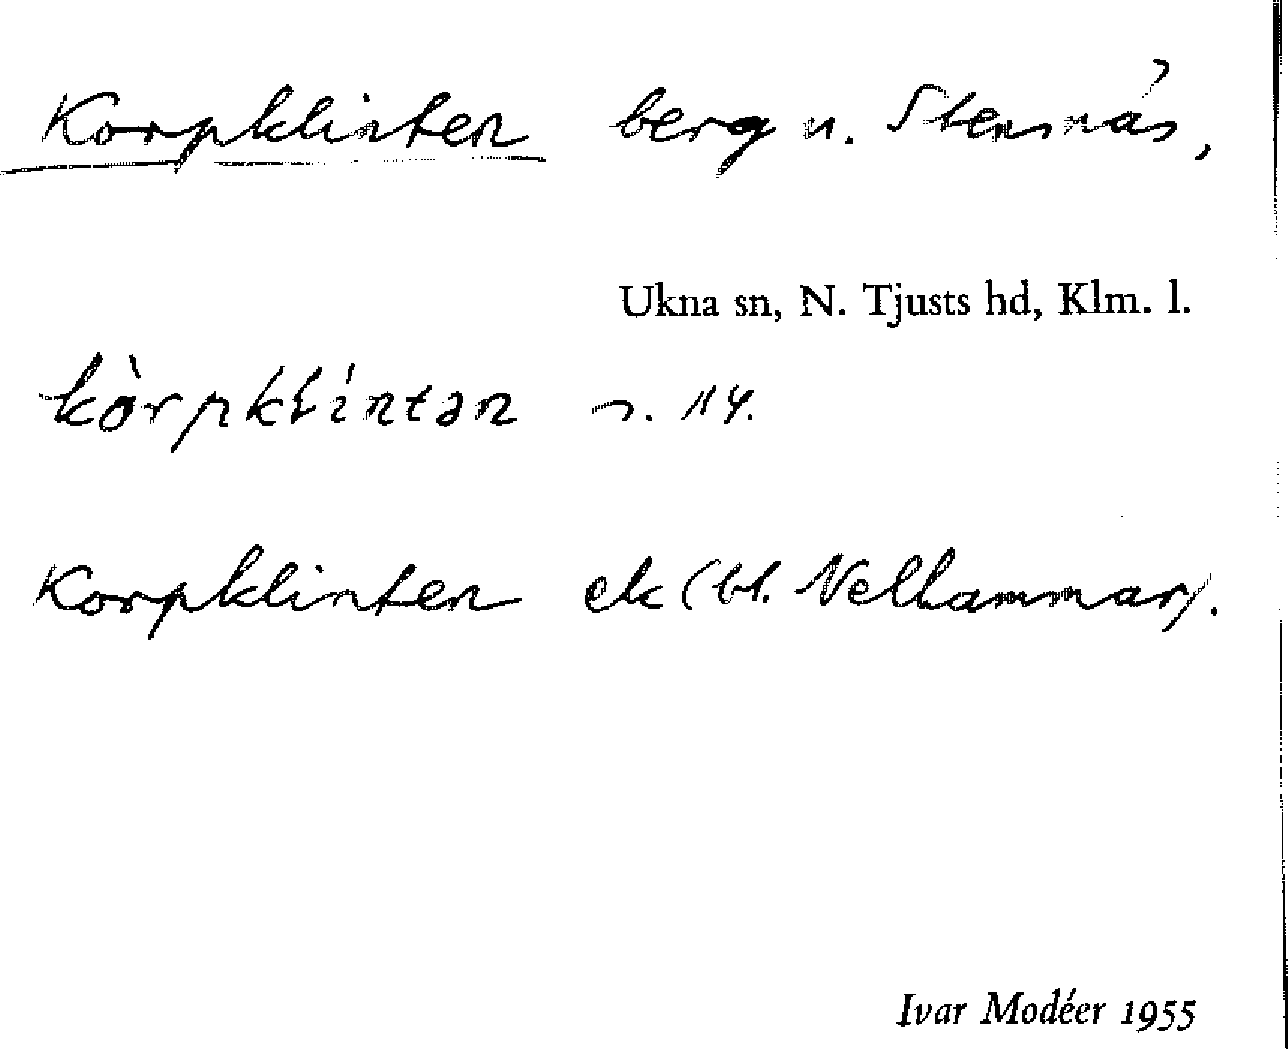 Korpklinten berg n. Stensnäs,
Ukna sn, N. Tjusts hd, Klm. l.
kòrpklíntən
Korpklinten ek (bl. Vellhammar).
Ivar Modéer 1955